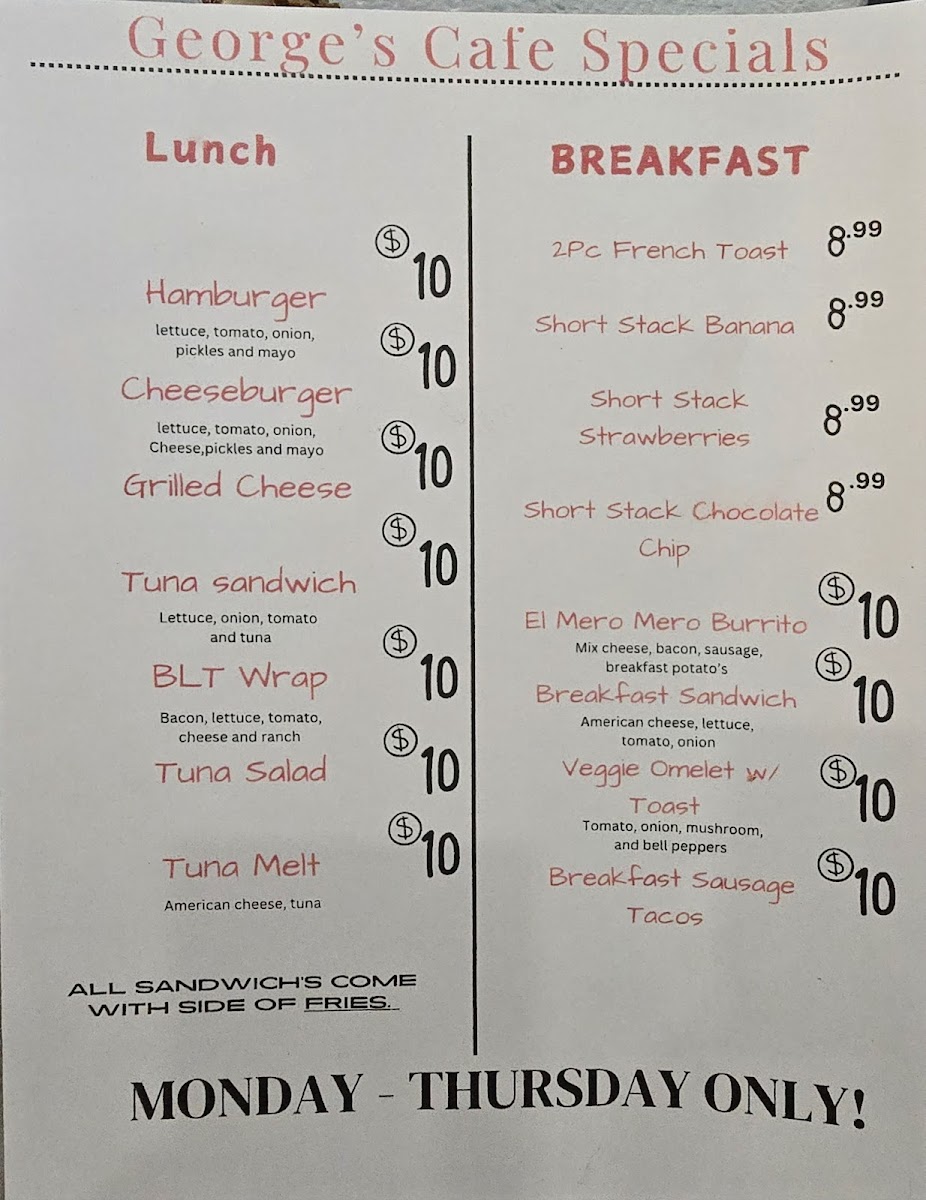 George's Cafe Specials
Lunch
$10
Hamburger
lettuce, tomato, onion,
pickles and mayo
$10
Cheeseburger
lettuce, tomato, onion,
Cheese,pickles and mayo
$10
Grilled Cheese
$10
Tuna sandwich
Lettuce, onion, tomato
and tuna
$10
BLT Wrap
Bacon, lettuce, tomato,
cheese and ranch
$10
Tuna Salad
$10
Tuna Melt
American cheese, tuna
ALL SANDWICH'S COME
WITH SIDE OF FRIES.
BREAKFAST
2Pc French Toast 8.99
Short Stack Banana 8.99
Short Stack
Strawberries 8.99
Short Stack Chocolate 8.99
Chip
El Mero Mero Burrito $10
Mix cheese, bacon, sausage,
breakfast potato's
Breakfast Sandwich $10
American cheese, lettuce,
tomato, onion
Veggie Omelet w/ $10
Toast
Tomato, onion, mushroom,
and bell peppers
Breakfast Sausage $10
Tacos
MONDAY - THURSDAY ONLY!